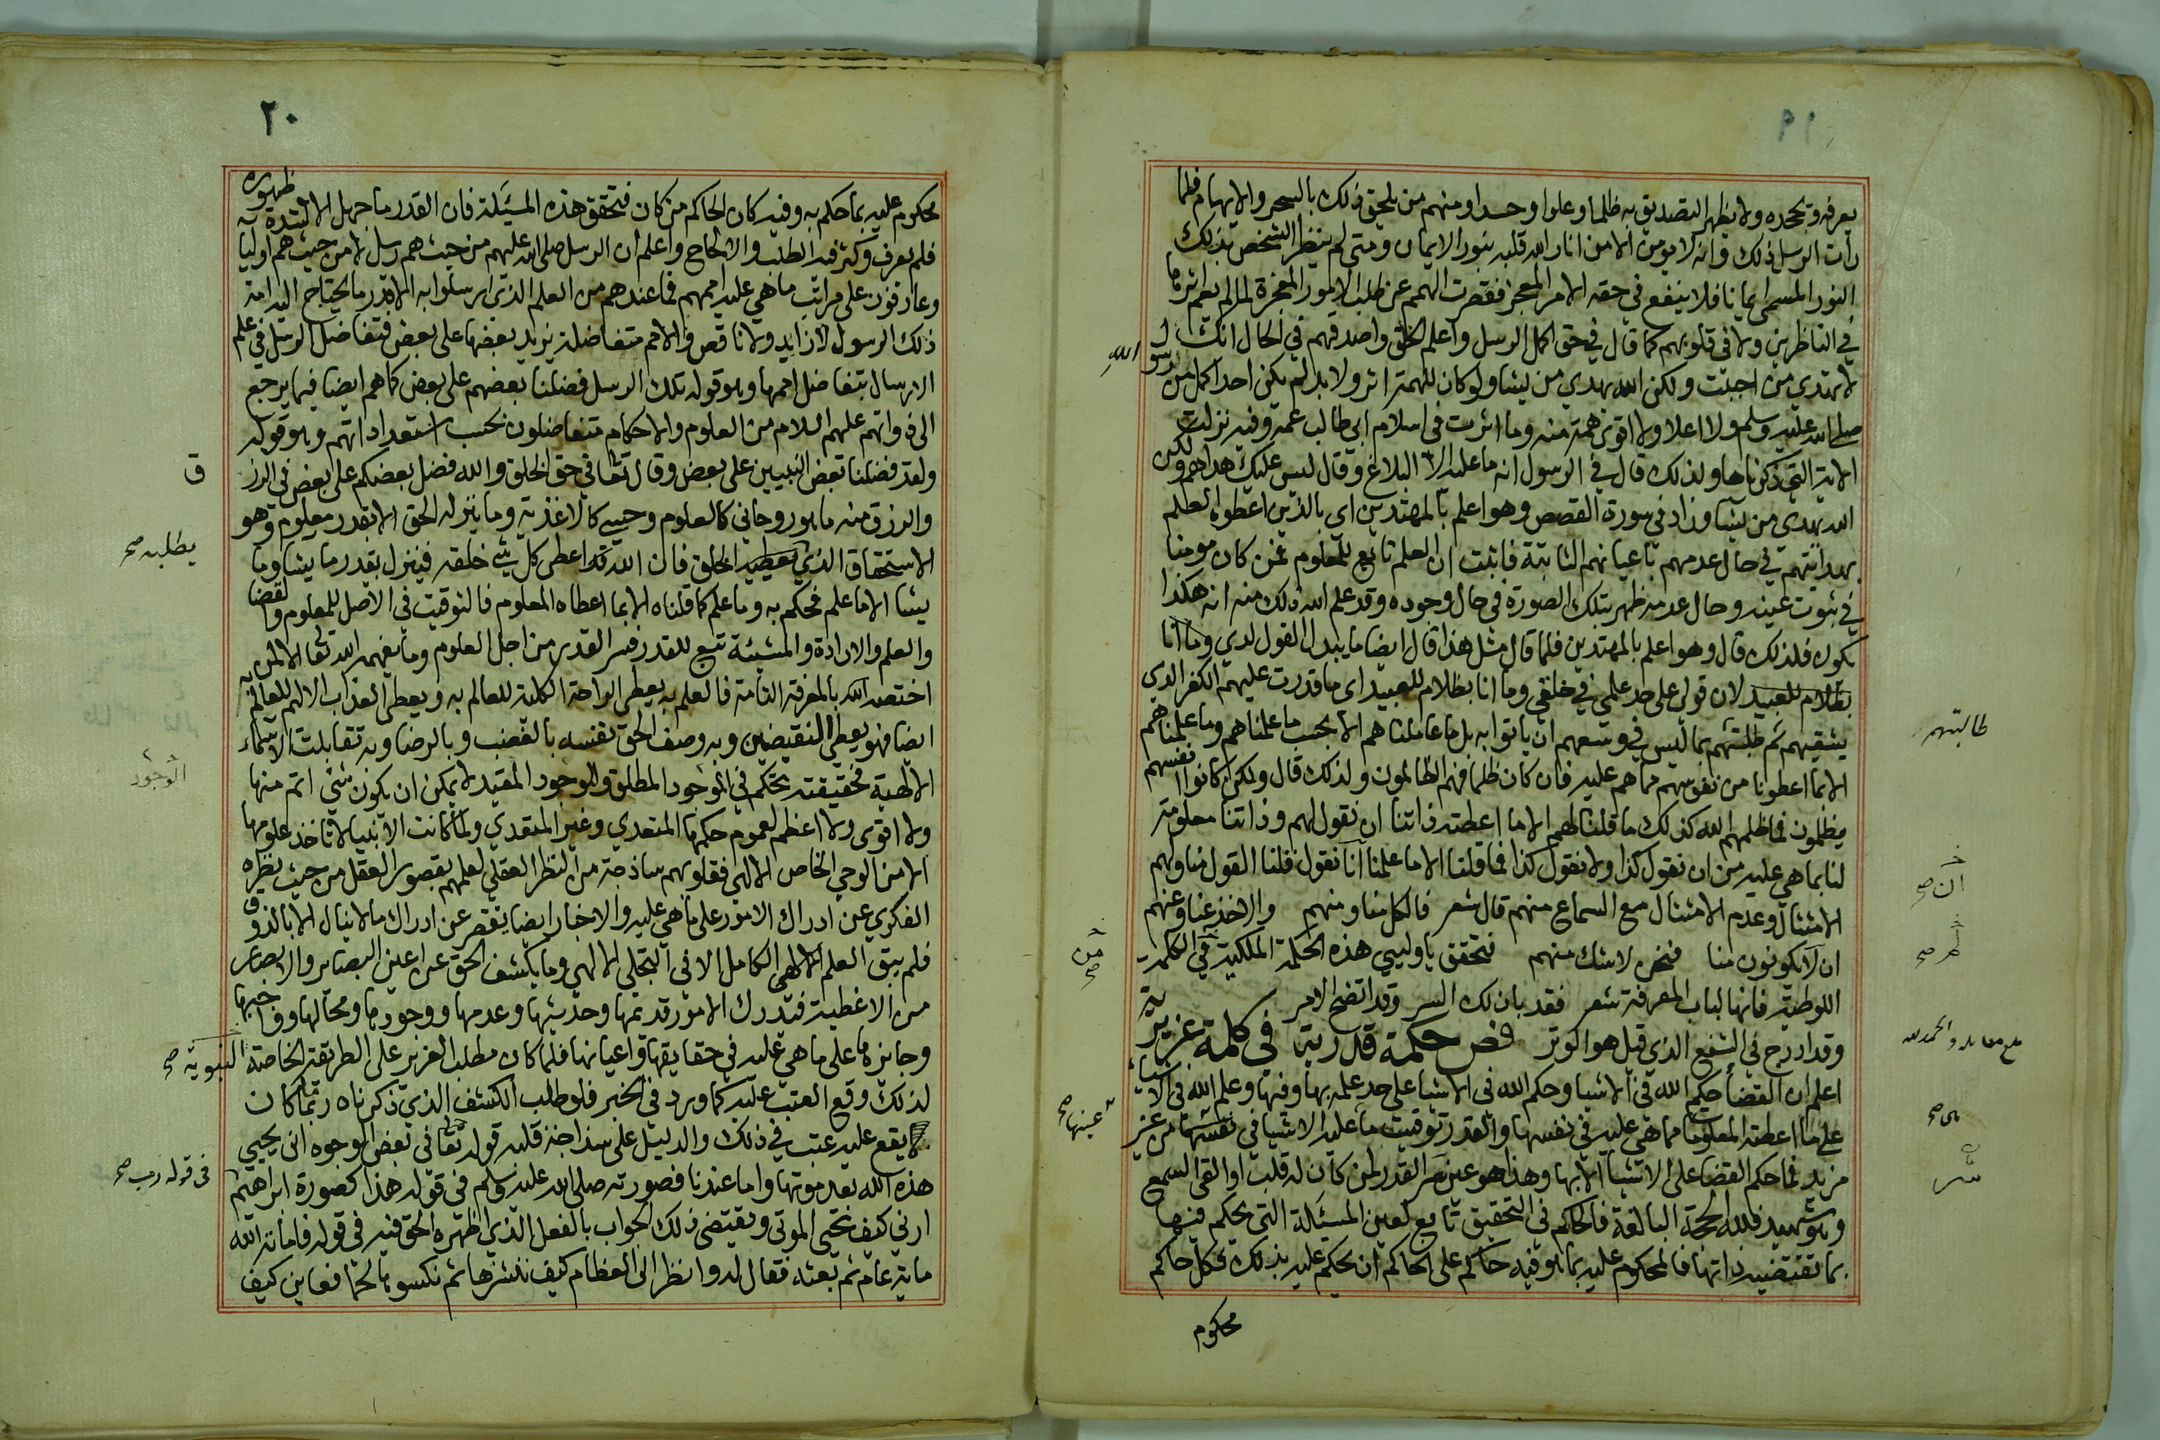 ١٩
يعرفه ويجحده ولا يظهر التصديق به ظلما وعلوا وحسدا ومنهم من يلحق ذلك بالسحر والايهام فلما
رات الرسل ذلك وانه لا يومن الا من انار الله قلبه بنور الايمان ومتى لم ينظر الشخص بذلك
النور المسمى ايمانا فلا ينفع في حقه الامر المعجز فقصرت الهمم عن طلب الامور المعجزة لما لم يعم اثرها
في الناظرين ولا في قلوبهم كما قال في حق اكمل الرسل واعلم الخلق واصدقهم في الحال انك
لا تهدي من احببت ولكن الله يهدي من يشا ولو كان للهمة اثر ولا بد لم يكن احد اكمل من رسول الله
صلى الله عليه وسلم ولا اعلا ولا اقوى همة منه وما اثرت في اسلام ابي طالب عمه وفيه نزلت
الاية التي ذكرناها ولذلك قال في الرسول انه ما عليه الا البلاغ وقال ليس عليك هداهم ولكن
الله يهدي من يشا وزاد في سورة القصص وهو اعلم بالمهتدين اي بالذين اعطوه العلم
بهدايتهم في حال عدمهم باعيانهم الثابتة فاثبت ان العلم تابع للمعلوم فمن كان مومنا
في ثبوت عينه وحال عدمه ظهر بتلك الصورة في حال وجوده وقد علم الله ذلك منه انه هكذا
يكون فلذلك قال وهو اعلم بالمهتدين فلما قال مثل هذا قال ايضا ما يبدل القول لدي وما انا
بظلام للعبيد لان قولي على حد علمي في خلقي وما انا بظلام للعبيد اى ما قدرت عليهم الكفر الذى
يشقيهم ثم طلبتهم بما ليس في وسعهم ان ياتوا به بل ما عاملناهم الا بحسب ما علمناهم وما علمناهم
الا بما اعطونا من نفوسهم مما هم عليه فان كان ظلما فهم الظالمون ولذلك قال ولكن كانوا انفسهم
يظلمون فما ظلمهم الله كذلك ما قلنا لهم الا ما اعطته ذاتنا ان نقول لهم وذاتنا معلومة
لنا بما هي عليه من ان نقول كذا ولا نقول كذا فما قلنا الا ما علمنا انا نقول فلنا القول منا ولهم
الامتثال وعدم الامتثال مع السماع منهم قال شعر فالكل منا ومنهم والاخذ عنا وعنهم
ان لا يكونون منا فنحن لا شك منهم فتحقق يا وليي هذه الحكمة الملكية في الكلمة
اللوطية فانها لباب المعرفة شعر فقد بان لك السر وقد اتضح الامر
وقد ادرج في الشفع الذي قيل هو الوتر فص حكمة قدرية في كلمة عزيرية
اعلم ان القضا حكم الله في الاشيا وحكم الله في الاشيا على حد علمه بها وفيها وعلم الله في الاشيا
على ما اعطته المعلومات مما هي عليه في نفسها والقدر توقيت ما عليه الاشيا في نفسها من غير
مزيد فما حكم القضا على الاشيا الا بها وهذا هو عين سر القدر لمن كان له قلب او القى السمع
وهو شهيد فلله الحجة البالغة فالحاكم في التحقيق تابع لعين المسئلة التي يحكم فيها
بما تقتضيه ذاتها فالمحكوم عليه بما هو فيه حاكم على الحاكم ان يحكم عليه بذلك فكل حاكم
محكوم
طالبتهم
ان صح
لهم صح
من صح
عينها صح
سر
٢٠
محكوم عليه بما حكم به وفيه كان الحاكم من كان فتحقق هذه المسئلة فان القدر ما جهل الا لشدة ظهوره
فلم يعرف وكثر فيه الطلب والالحاح واعلم ان الرسل صلى الله عليهم من حيث هم رسل لا من حيث هم اوليا
وعارفون على مراتب ما هي عليه اممهم فما عندهم من العلم الذي ارسلوا به الا قدر ما يحتاج اليه امة
ذلك الرسول لا زايد ولا ناقص والامم متفاضلة يزيد بعضها على بعض فتفاضل الرسل في علم
الارسال بتفاضل اممها وهو قوله تلك الرسل فضلنا بعضهم على بعض كما هم ايضا فيما يرجع
الى ذواتهم عليهم السلام من العلوم والاحكام متفاضلون بحسب استعداداتهم وهو قوله
ولقد فضلنا بعض النبيين على بعض وقال تعا في حق الخلق والله فضل بعضكم على بعض في الرز
ق
والرزق منه ما هو روحاني كالعلوم وحسي كالاغذية وما ينزله الحق الا بقدر معلوم وهو
الاستحقاق الذي يعطيه الخلق فان الله قد اعطى كل شي خلقه فينزل بقدر ما يشا وما
يطلبه صح
يشا الا ما علم فحكم به وما علم كما قلناه الا بما اعطاه المعلوم فالتوقيت في الاصل للمعلوم والقضا
والعلم والارادة والمشيئة تبع للقدر فسر القدر من اجل العلوم وما يفهمه الله تعا الا لمن
اختصه الله بالمعرفة التامة فالعلم به يعطي الراحة الكلية للعالم به ويعطي العذاب الاليم للعالم به
ايضا فهو يعطي النقيضين وبه وصف الحق نفسه بالغضب وبالرضا وبه تقابلت الاسماء
الالهية فحقيقته تحكم في الموجود المطلق والوجود المقيد لا يمكن ان يكون شي اتم منها
الوجود
ولا اقوى ولا اعظم لعموم حكمها المتعدي وغير المتعدي ولما كانت الانبيا لا تاخذ علومها
الا من الوحي الخاص الالهي فقلوبهم ساذجة من النظر العقلي لعلمهم بقصور العقل من حيث نظره
الفكري عن ادراك الامور على ما هي عليه والاخبار ايضا يقصر عن ادراك ما لا ينال الا بالذوق
فلم يبق العلم الالهي الكامل الا في التجلي الالهي وما يكشف الحق عن اعين البصائر والابصار
من الاغطية فتدرك الامور قديمها وحديثها وعدمها ووجودها ومحالها وواجبها
وجايزها على ما هي عليه في حقايقها واعيانها فلما كان مطلب العزير على الطريقة الخاصة
النبوية صح
لذلك وقع العتب عليه كما ورد في الخبر فلو طلب الكشف الذي ذكرناه ربما كان
لا يقع عليه عتب في ذلك والدليل على سذاجة قلبه قوله تعا في بعض الوجوه انى يحيي
هذه الله بعد موتها واما عندنا فصورته صلى الله عليه وسلم في قوله هذا كصورة ابراهيم
في قوله رب صح
ارني كيف تحيى الموتى ويقتضي ذلك الجواب بالفعل الذي اظهره الحق فيه في قوله فاماته الله
ماية عام ثم بعثه فقال له وانظر الى العظام كيف ننشزها ثم نكسوها لحما فعاين كيف